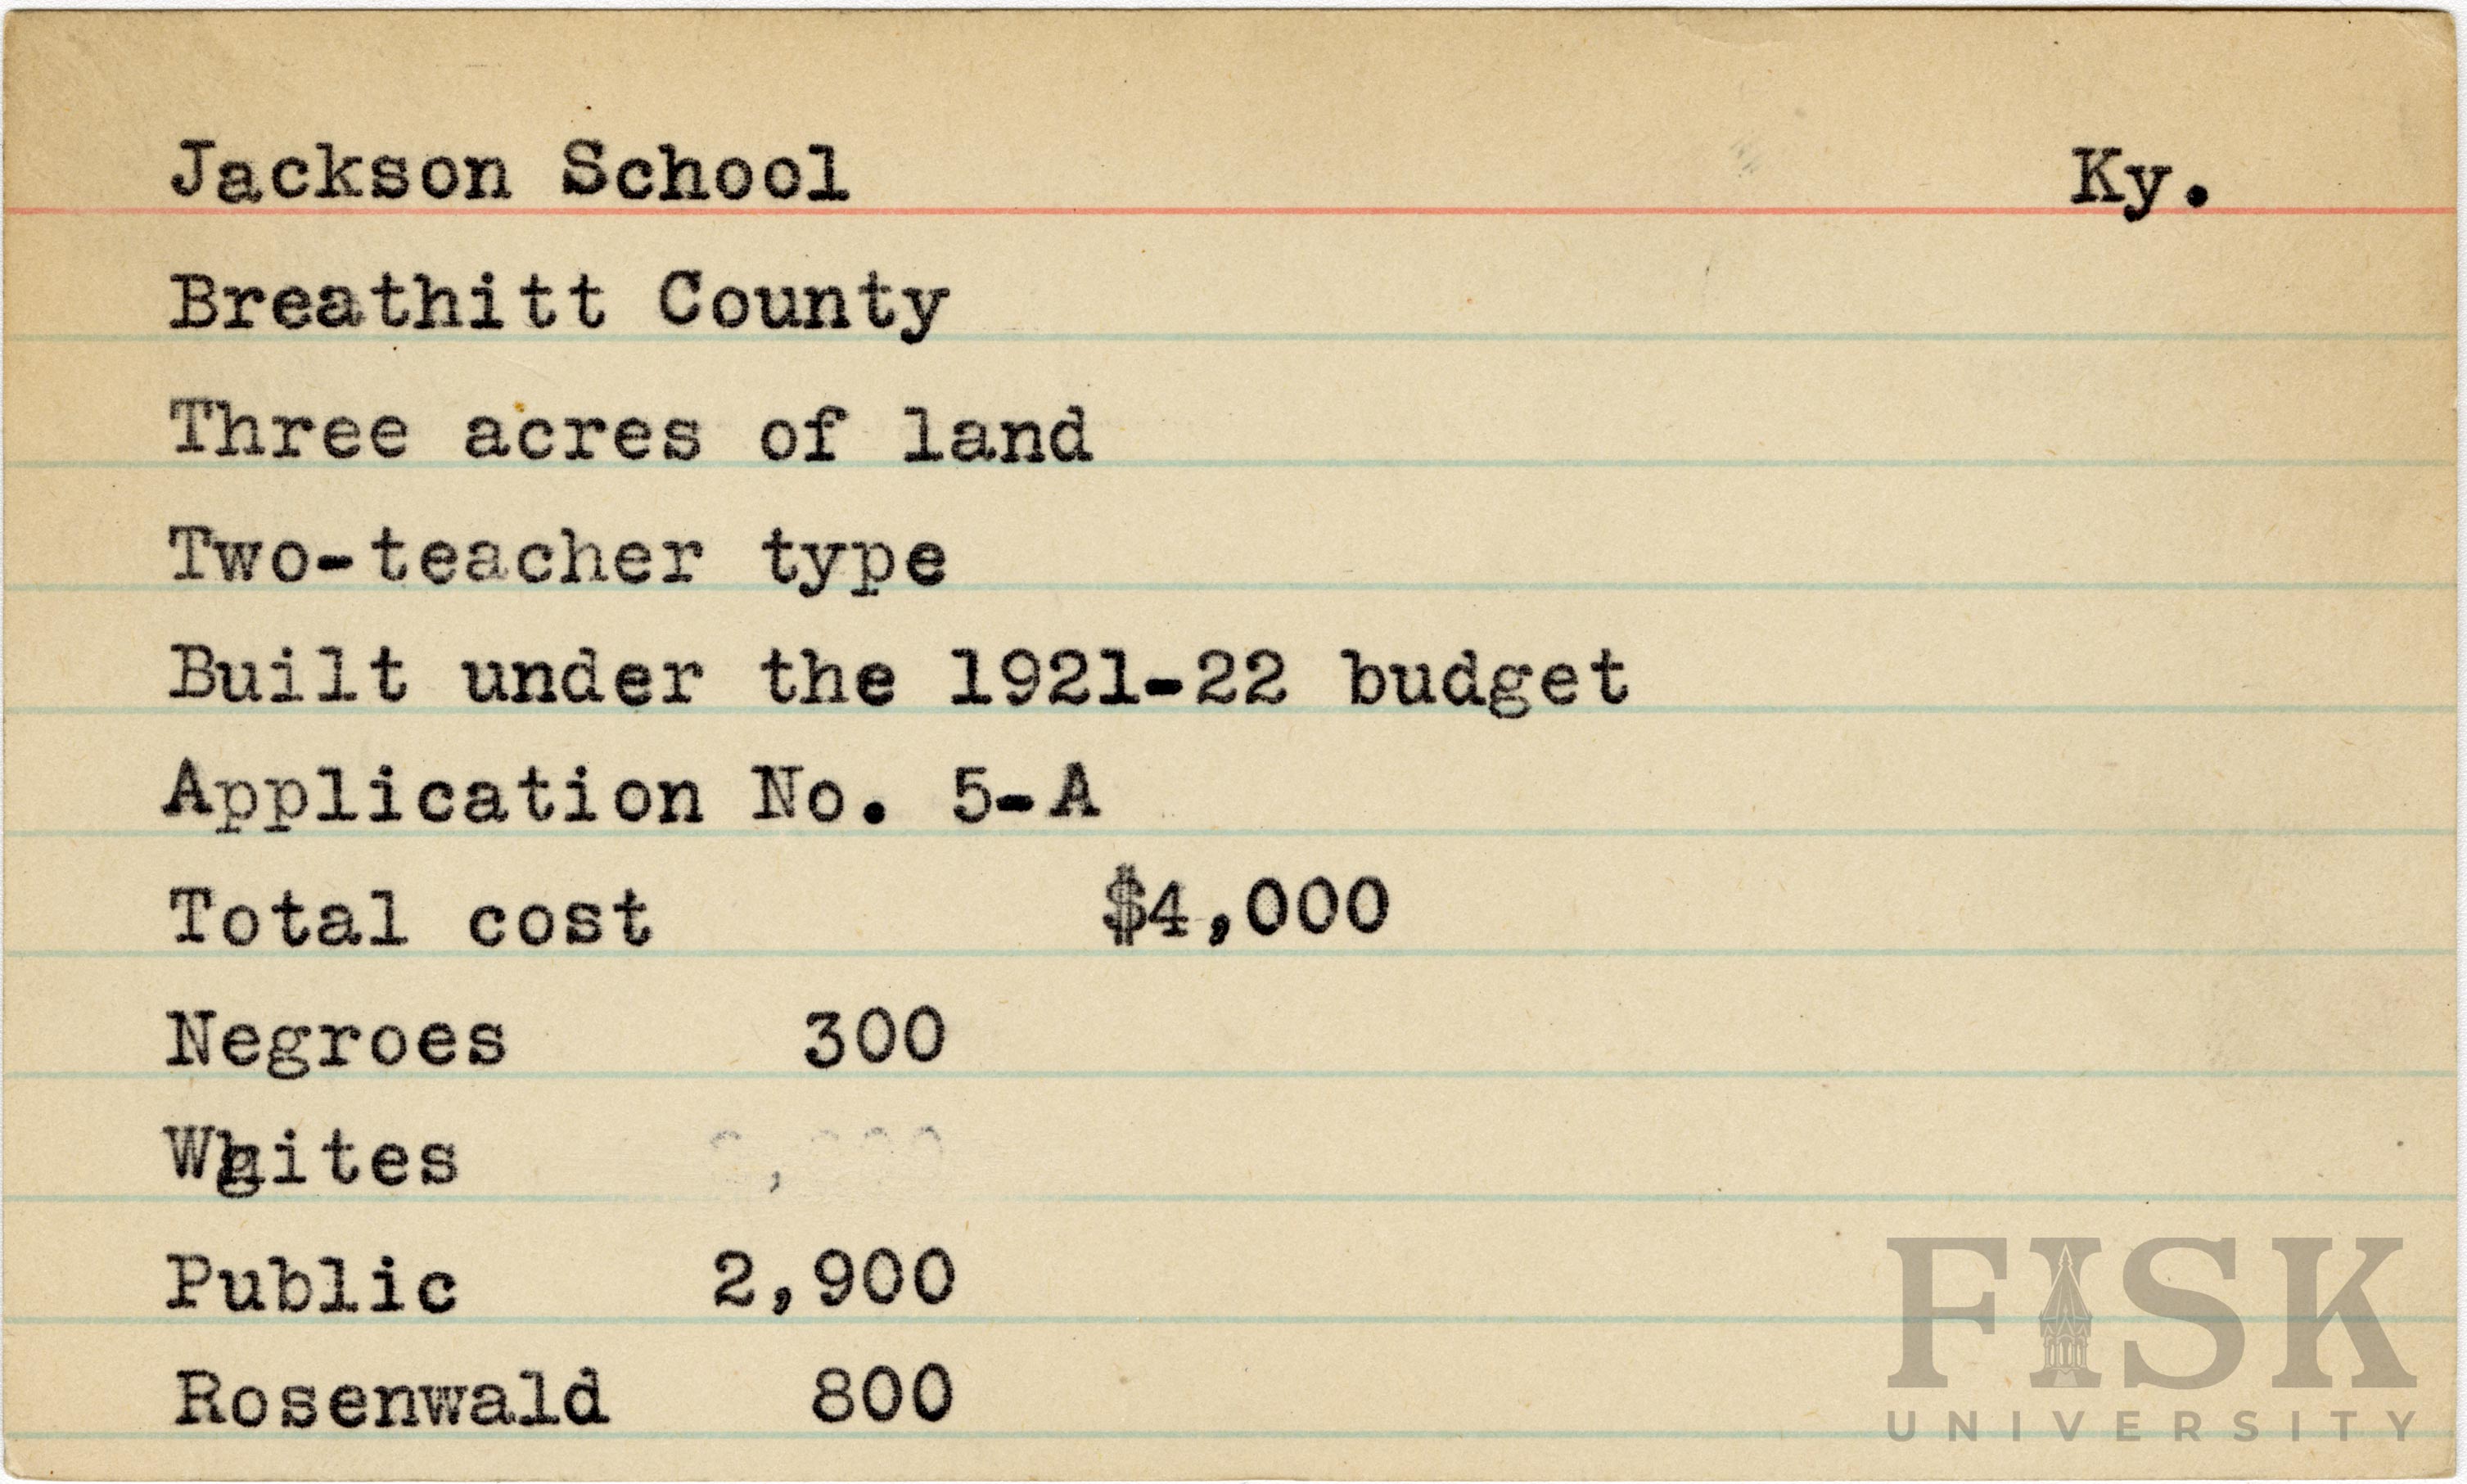 Jackson School Ky.
Breathitt County
Three acres of land
Two-teacher type
Built under the 1921-22 budget
Application No. 5-A
Total cost $4,000
Negroes 300
Whites
Public 2,900
Rosenwald 800
FISK
UNIVERSITY